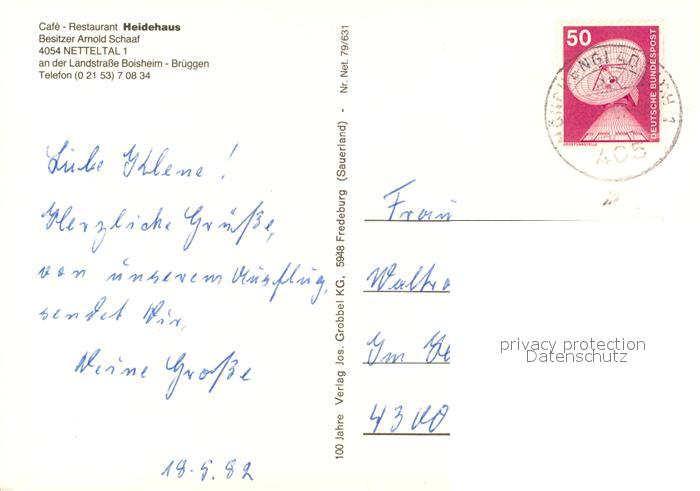 Café - Restaurant Heidehaus
Besitzer Arnold Schaaf
4054 NETTELTAL 1
an der Landstraße Boisheim - Brüggen
Telefon (0 21 53) 7 08 34
Liebe Kleine !
Herzliche Grüße,
von unserem Ausflug,
sendet Dir,
Deine Große
18.5.82
100 Jahre Verlag Jos. Grobbel KG, 5948 Fredeburg (Sauerland) - Nr. Net. 79/631
50
DEUTSCHE BUNDESPOST
ERDFUNKSTELLE
MÖNCHENGLADBACH 1
405
Frau
Waltr
Im
4300
privacy protection
Datenschutz